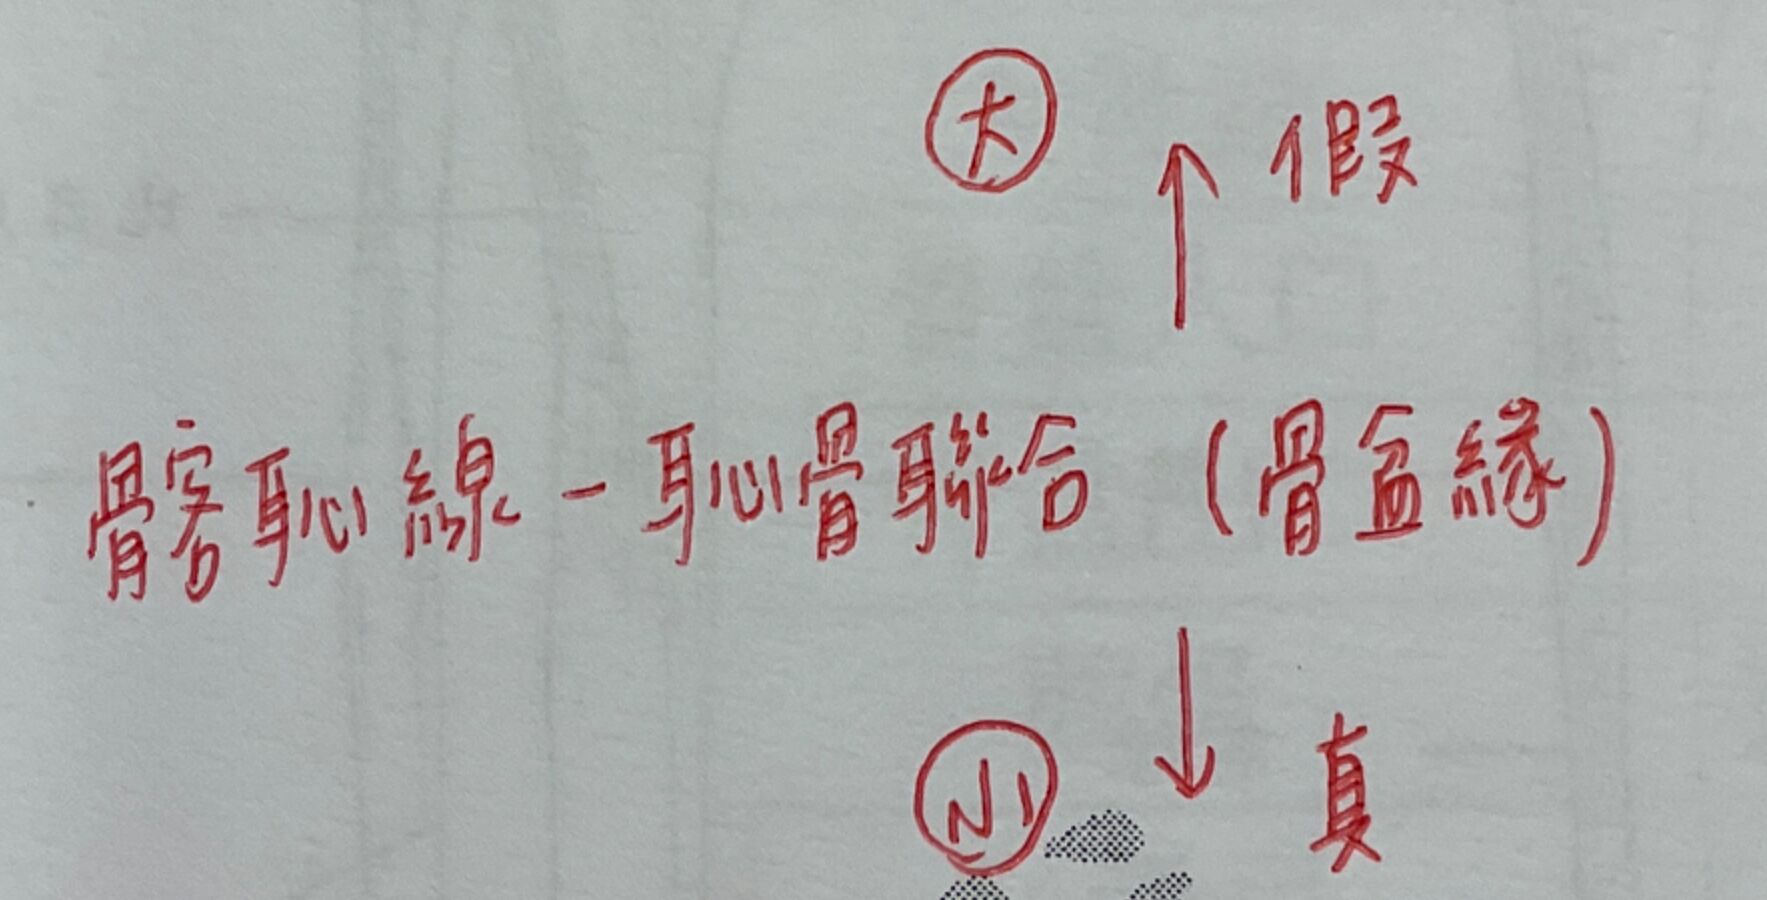 大
↑ 假
髂恥線－恥骨聯合（骨盆緣）
↓ 真
小